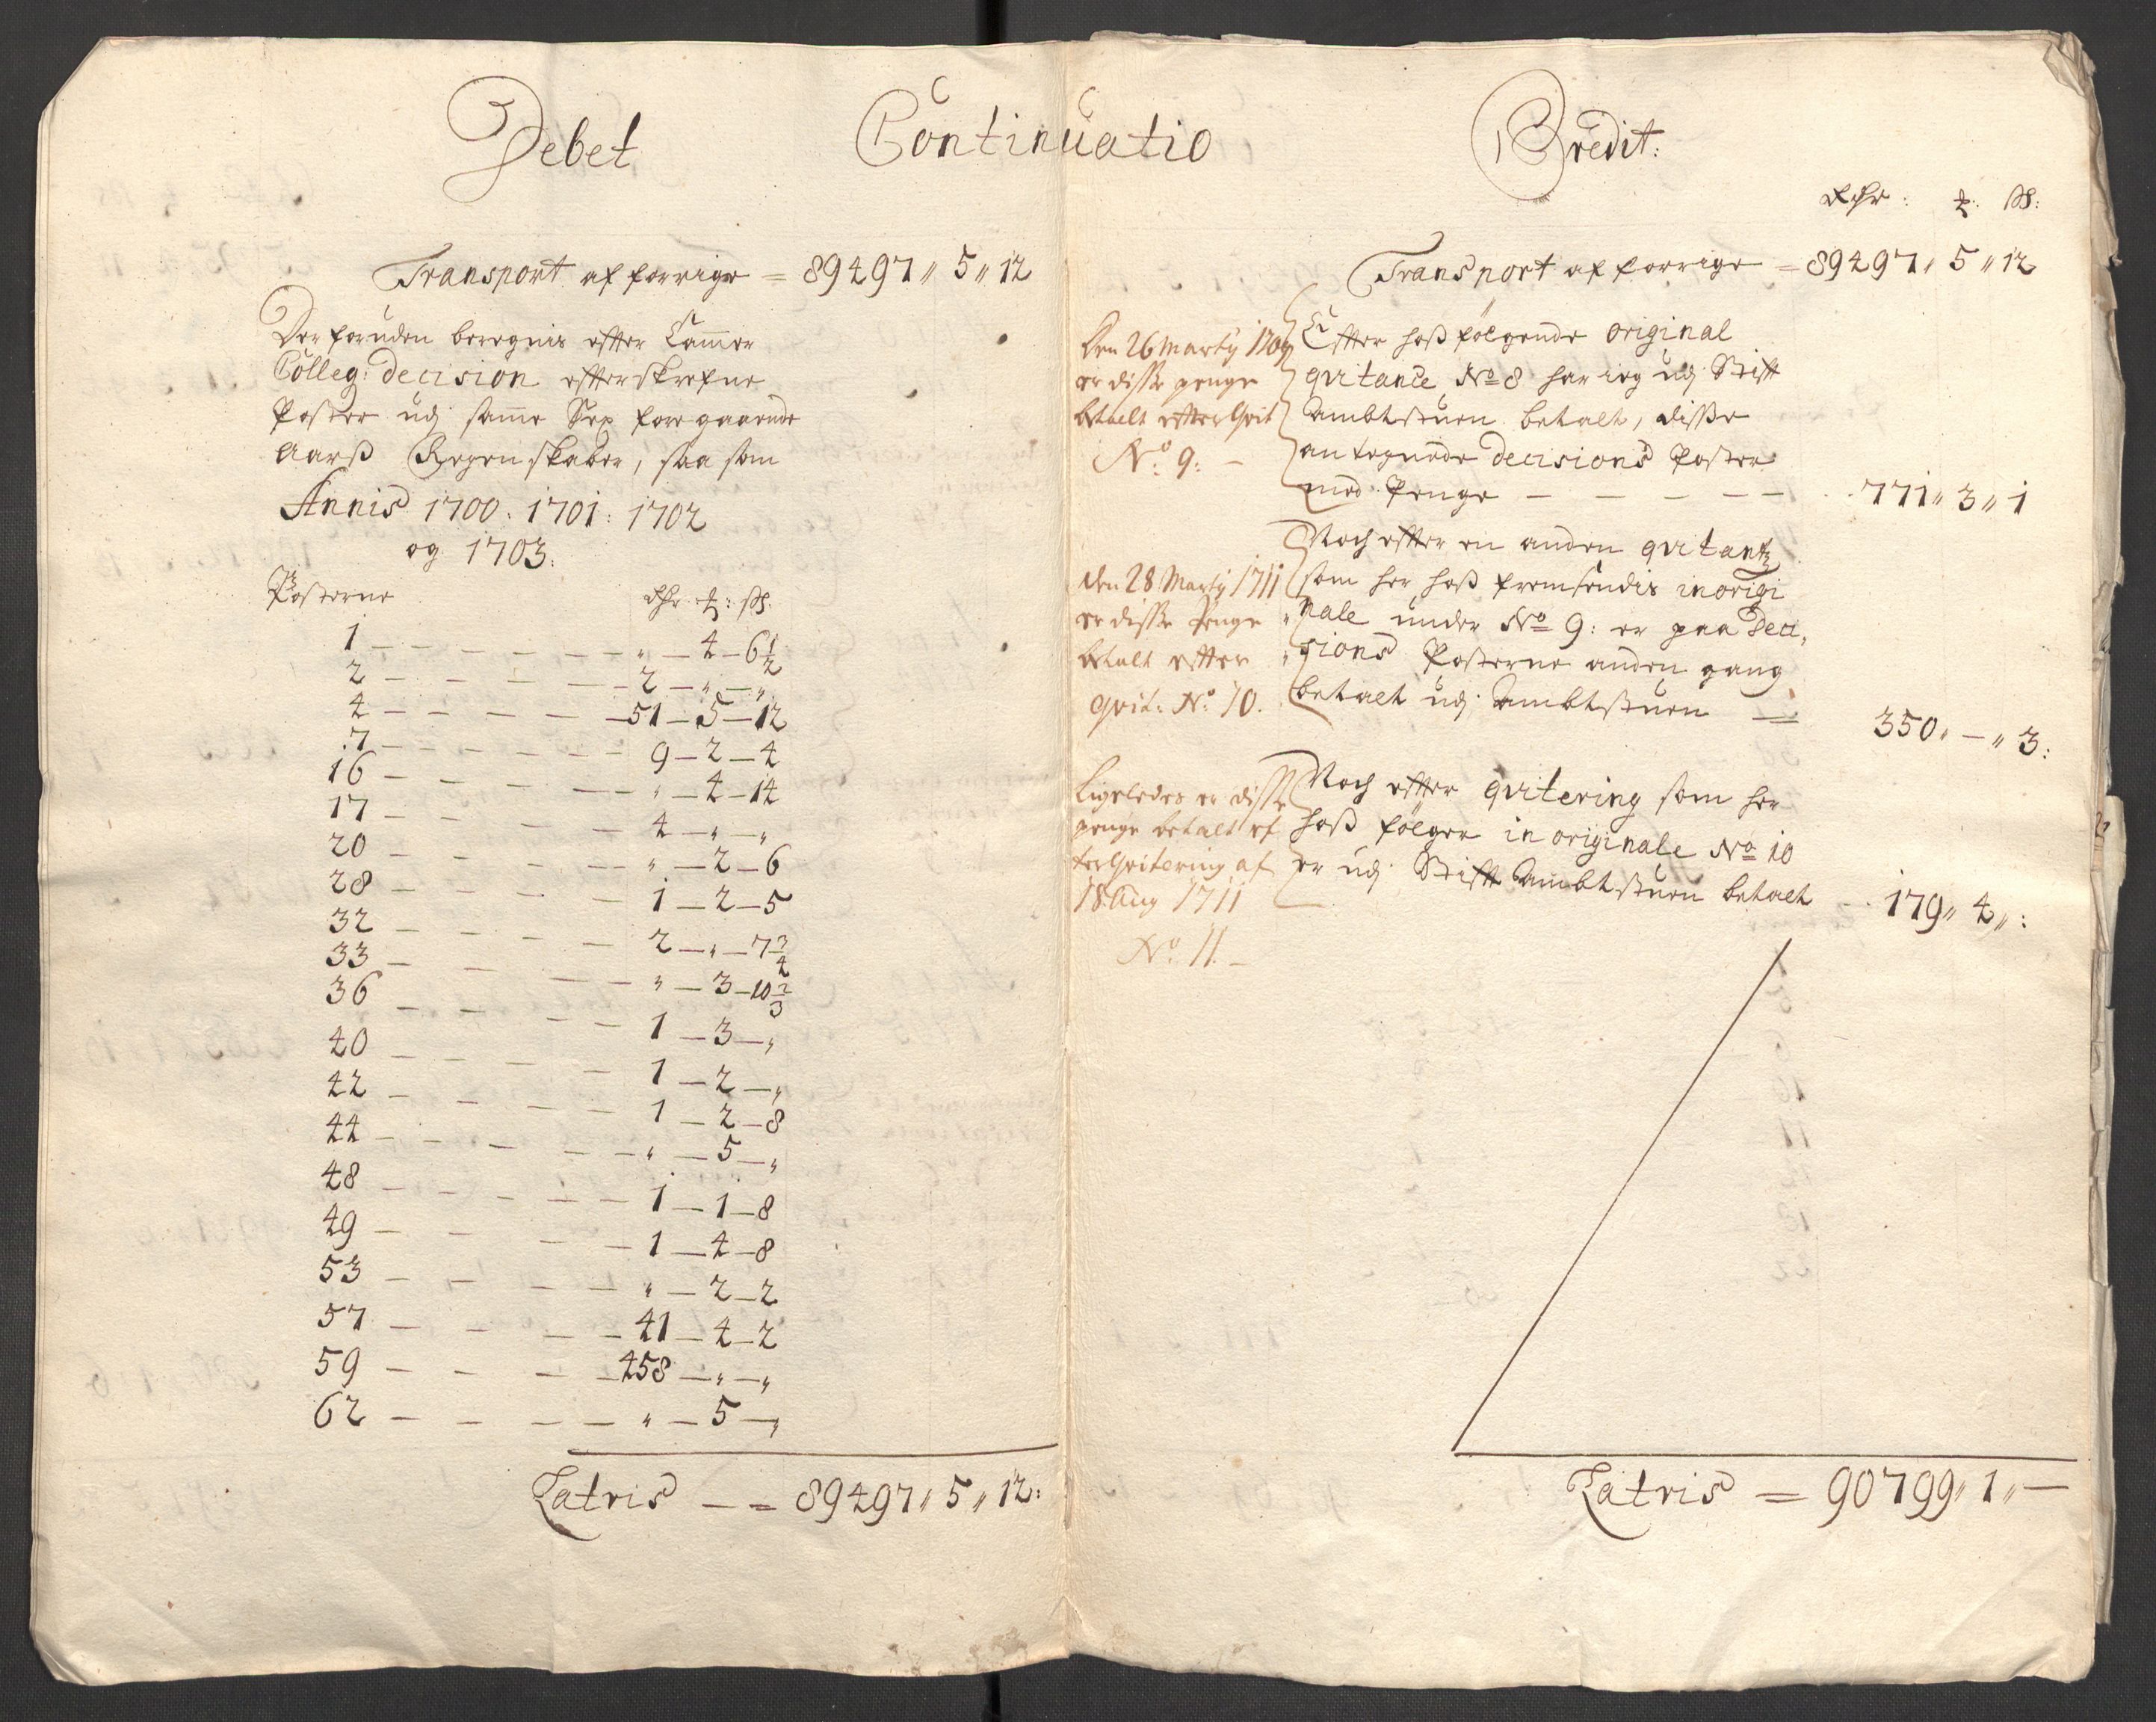 Debet Continuatio Credit:
Transport af forrige = 89497 „ 5 „ 12
Der foruden beregnis effter Cammer
Colleg: decision effterskrefne
Poster udj samme Sex foregaaende
Aarß Regenskaber, saa som
Annis 1700. 1701: 1702
og 1703:
Posterne Rdr ort: ß.
1 — „ — 4 — 6 1/2
2 — 2 — „ — „
4 — 51 — 5 — 12
7 — 9 — 2 — 4
16 — „ — 4 — 14
17 — 4 — „ — „
20 — „ — 2 — 6
28 — 1 — 2 — 5
32 — 2 — „ — 7 3/4
33 — „ — 3 — 10 2/3
36 — 1 — 3 — „
40 — 1 — 2 — „
42 — 1 — 2 — 8
44 — „ — 5 — „
48 — 1 — 1 — 8
49 — 1 — 4 — 8
53 — „ — 2 — 2
57 — 41 — 4 — 2
59 — 458 — „ — „
62 — „ — 5 — „
Latris — = 89497 „ 5 „ 12:
Rdr: ort: ß:
Transport af forrige = 89497 „ 5 „ 12
Den 26 Martij 1709
er disse penge
betalt effter Qvit
No. 9: —
Effter hoßfølgende original
qvitance No 8 har ieg udj Stifft
Ambtstuen betalt, disse
antegnede decisions Poster
med Penge — — — — — 771 „ 3 „ 1
den 28 Martij 1711
er disse Penge
betalt effter
qvit: No: 10.
Noch effter en anden qvitantz
som her hoß fremsendis in origi
nale under No 9: er paa Deci„
sions Posterne anden gang
betalt udj Ambtstuen — 350 „ — „ 3:
Ligeledes er disse
penge betalt ef
ter Qvitering af
18 Aug 1711
No. 11. —
Noch effter qvitering som her
hoß følger in originale No 10
er udj Stifft Ambtstuen betalt — 179 „ 4 „ :
Latris = 90799 „ 1 „ —